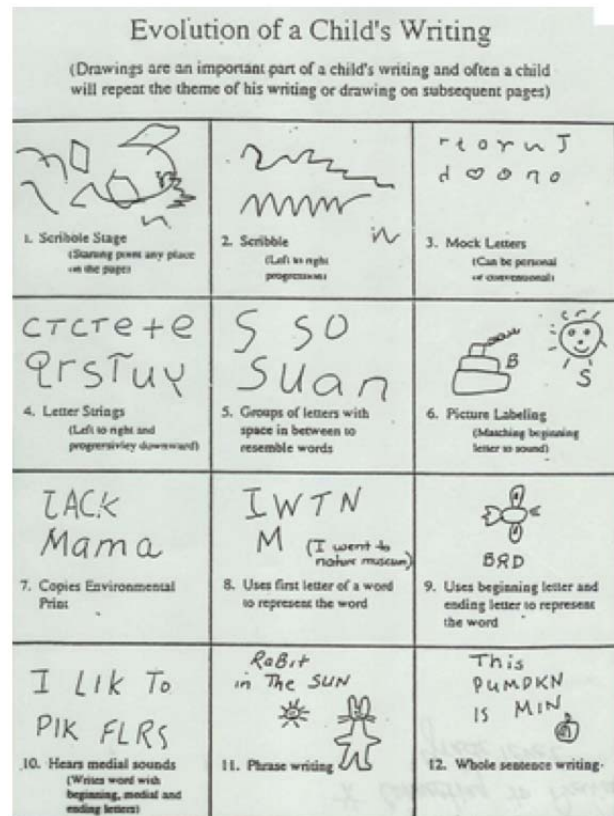 Evolution of a Child's Writing
(Drawings are an important part of a child's writing and often a child
will repeat the theme of his writing or drawing on subsequent pages)
1. Scribble Stage
(Starting point any place
on the page)
2. Scribble
(Left to right
progression)
r t o r u J
d o o n o
3. Mock Letters
(Can be personal
or conventional)
CTCTe+e
QrSTuy
4. Letter Strings
(Left to right and
progressivley downward)
S SO
Suan
5. Groups of letters with
space in between to
resemble words
B
S
6. Picture Labeling
(Matching beginning
letter to sound)
ZACK
Mama
7. Copies Environmental
Print
I W T N
M (I went to
nature museum)
8. Uses first letter of a word
to represent the word
BRD
9. Uses beginning letter and
ending letter to represent
the word
I LIK To
PIK FLRS
10. Hears medial sounds
(Writes word with
beginning, medial and
ending letters)
RaBit
in The SUN
11. Phrase writing
This
PUMPKN
IS MIN.
12. Whole sentence writing.